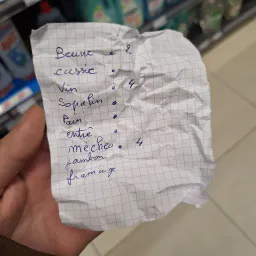 Beurre • 2
cassie •
Vin • 4
Sopalin •
Pain •
entrê •
mèches • 4
jambon
fromage